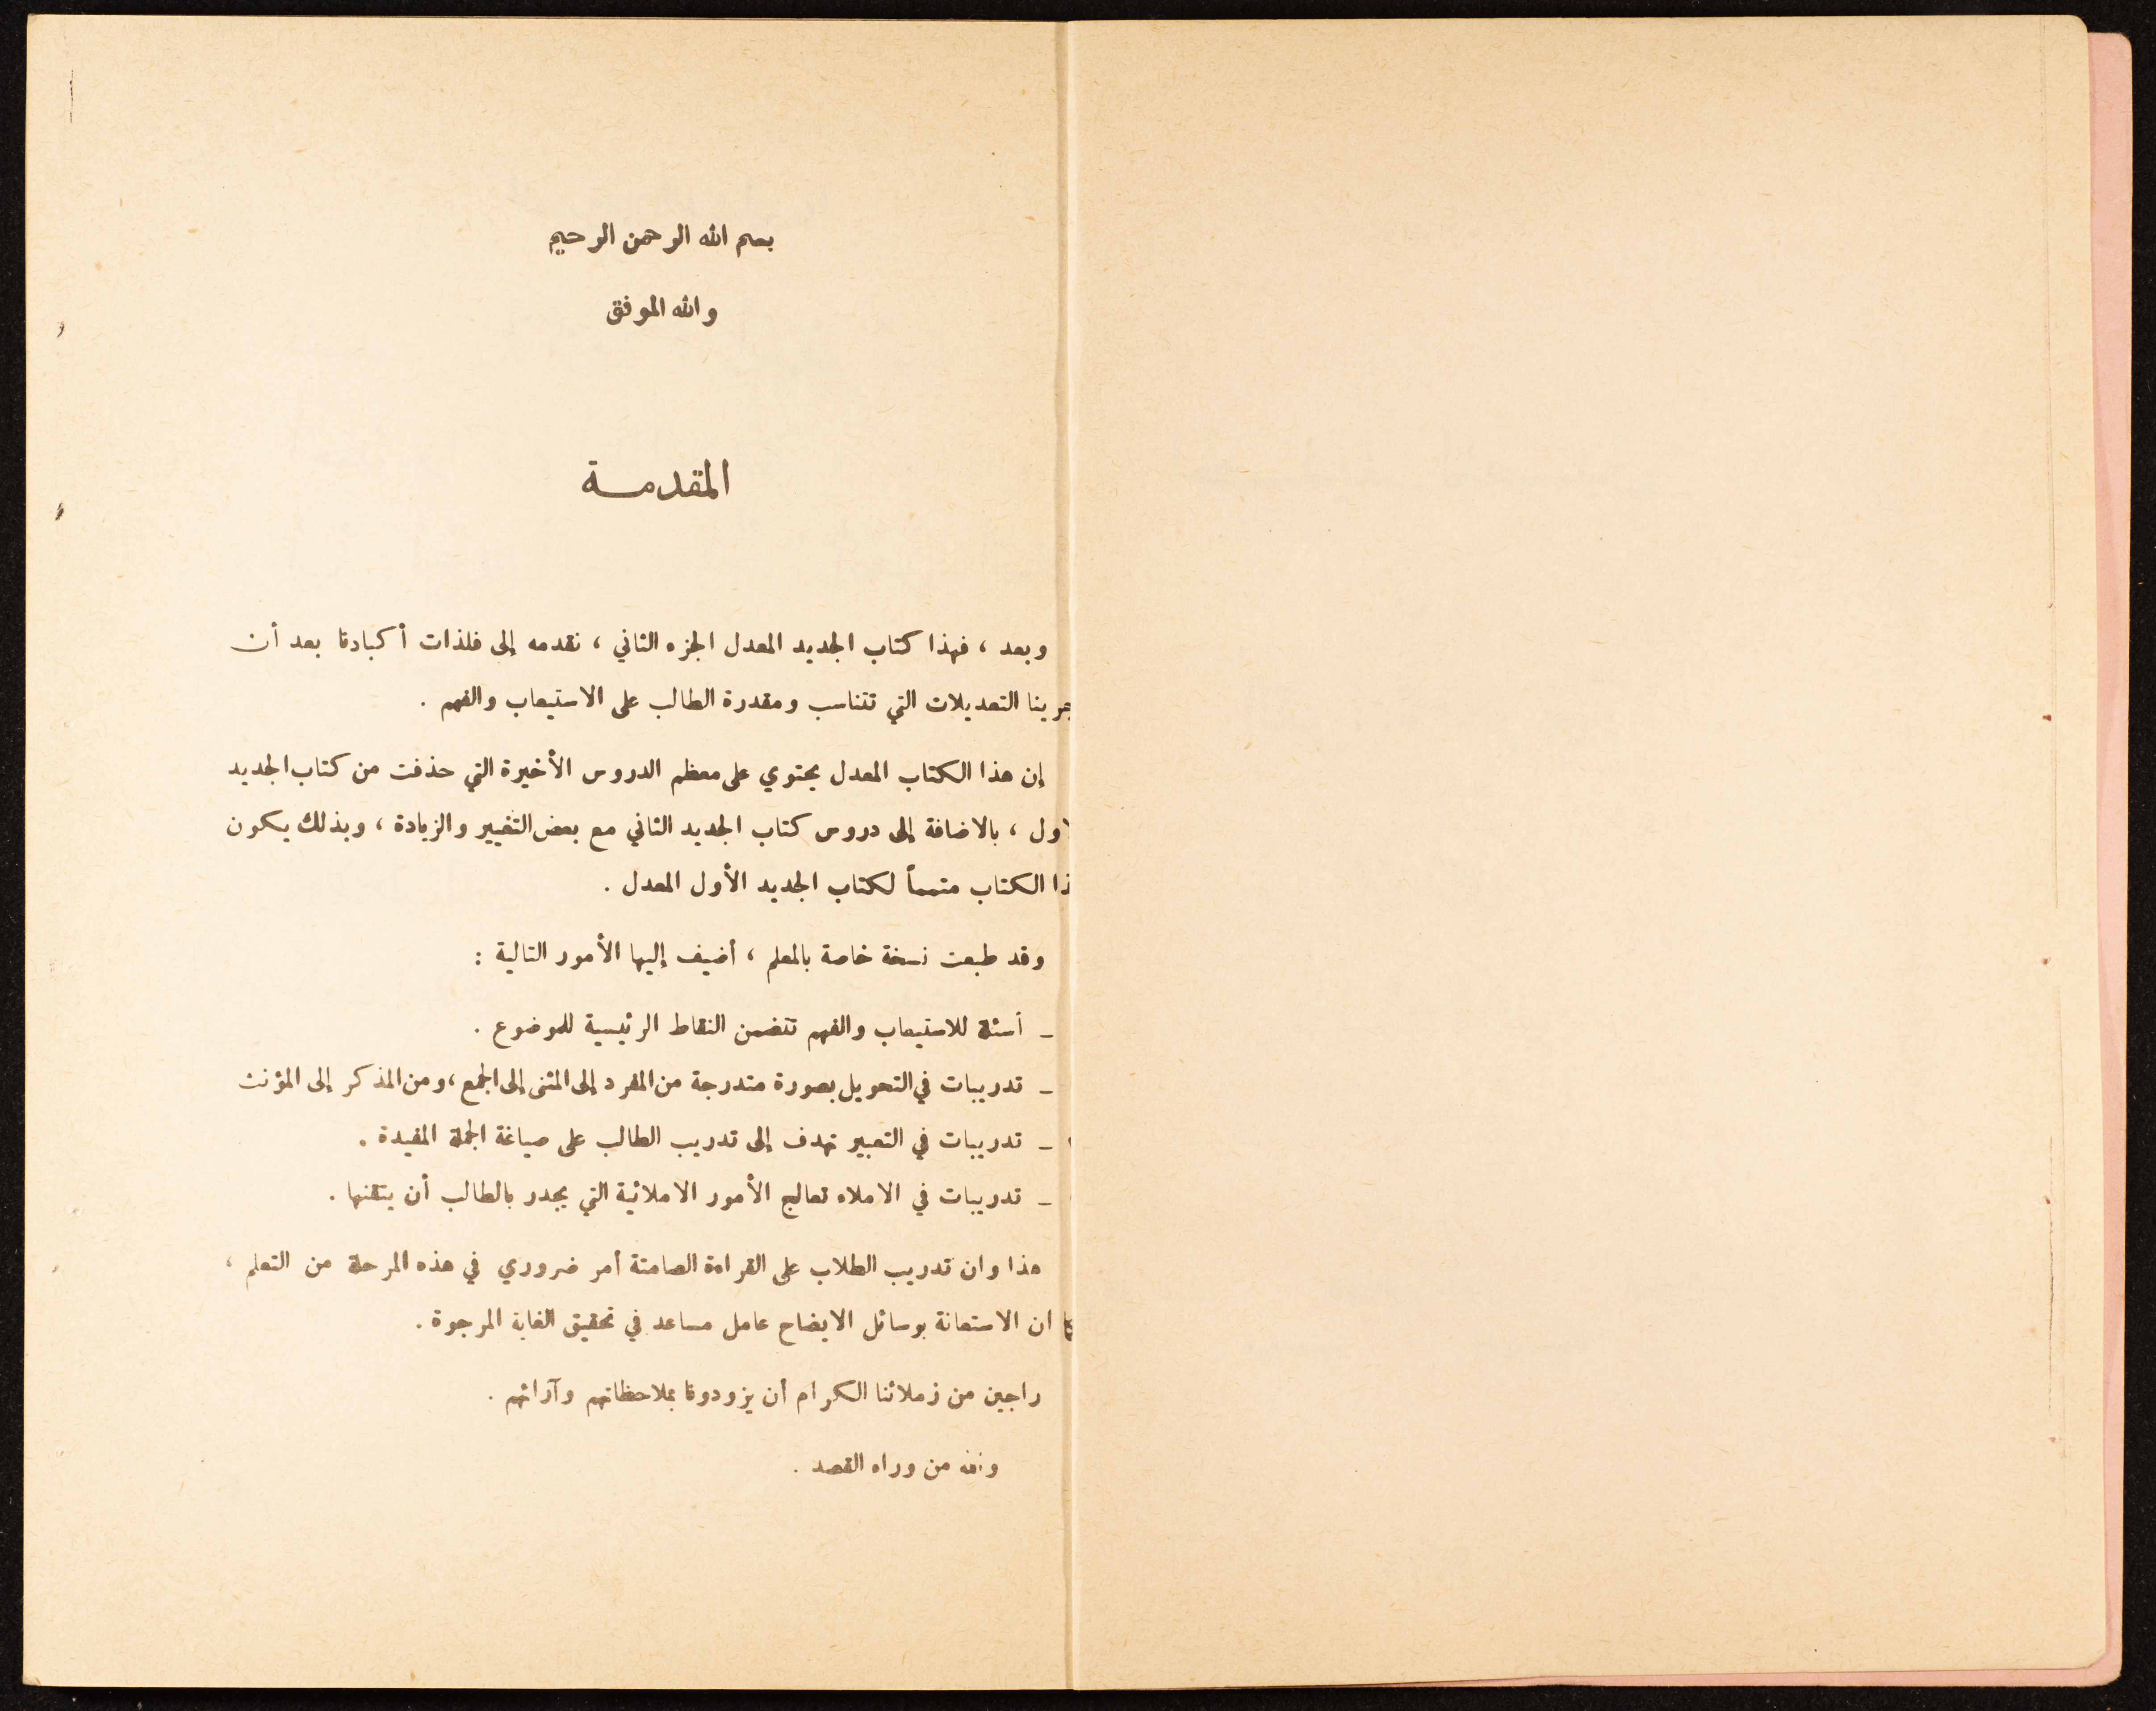 بسم الله الرحمن الرحيم
والله الموفق
المقدمـــة
وبعد ، فهذا كتاب الجديد المعدل الجزء الثاني ، نقدمه إلى فلذات أكبادنا بعد أن
جرينا التعديلات التي تتناسب ومقدرة الطالب على الاستيعاب والفهم .
إن هذا الكتاب المعدل يحتوي على معظم الدروس الأخيرة التي حذفت من كتاب الجديد
لاول ، بالاضافة إلى دروس كتاب الجديد الثاني مع بعض التغيير والزيادة ، وبذلك يكون
ذا الكتاب متمماً لكتاب الجديد الأول المعدل .
وقد طبعت نسخة خاصة بالمعلم ، أضيف إليها الأمور التالية :
ـ أسئلة للاستيعاب والفهم تتضمن النقاط الرئيسية للموضوع .
ـ تدريبات في التحويل بصورة متدرجة من المفرد إلى المثنى إلى الجمع ، ومن المذكر إلى المؤنث
ـ تدريبات في التعبير تهدف إلى تدريب الطالب على صياغة الجملة المفيدة .
ـ تدريبات في الاملاء تعالج الأمور الاملائية التي يجدر بالطالب أن يتقنها .
هذا وان تدريب الطلاب على القراءة الصامتة أمر ضروري في هذه المرحلة من التعلم ،
كما ان الاستعانة بوسائل الايضاح عامل مساعد في تحقيق الغاية المرجوة .
راجين من زملائنا الكرام أن يزودونا بملاحظاتهم وآرائهم .
والله من وراء القصد .